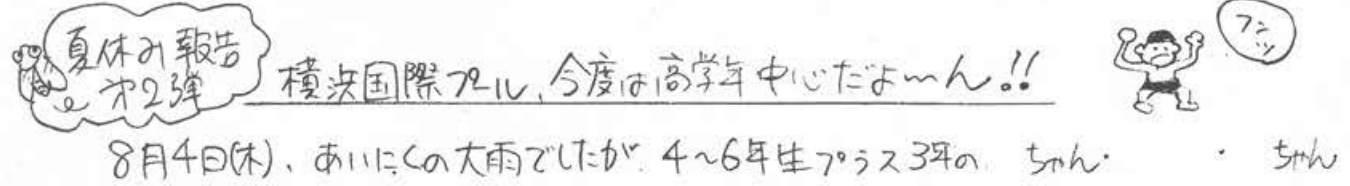 夏休み報告
第2弾
横浜国際プール、今度は高学年中心だよ〜ん!!
フンッ
8月4日(木)、あいにくの大雨でしたが、4〜6年生プラス3年の ちゃん・ ・ ちゃん